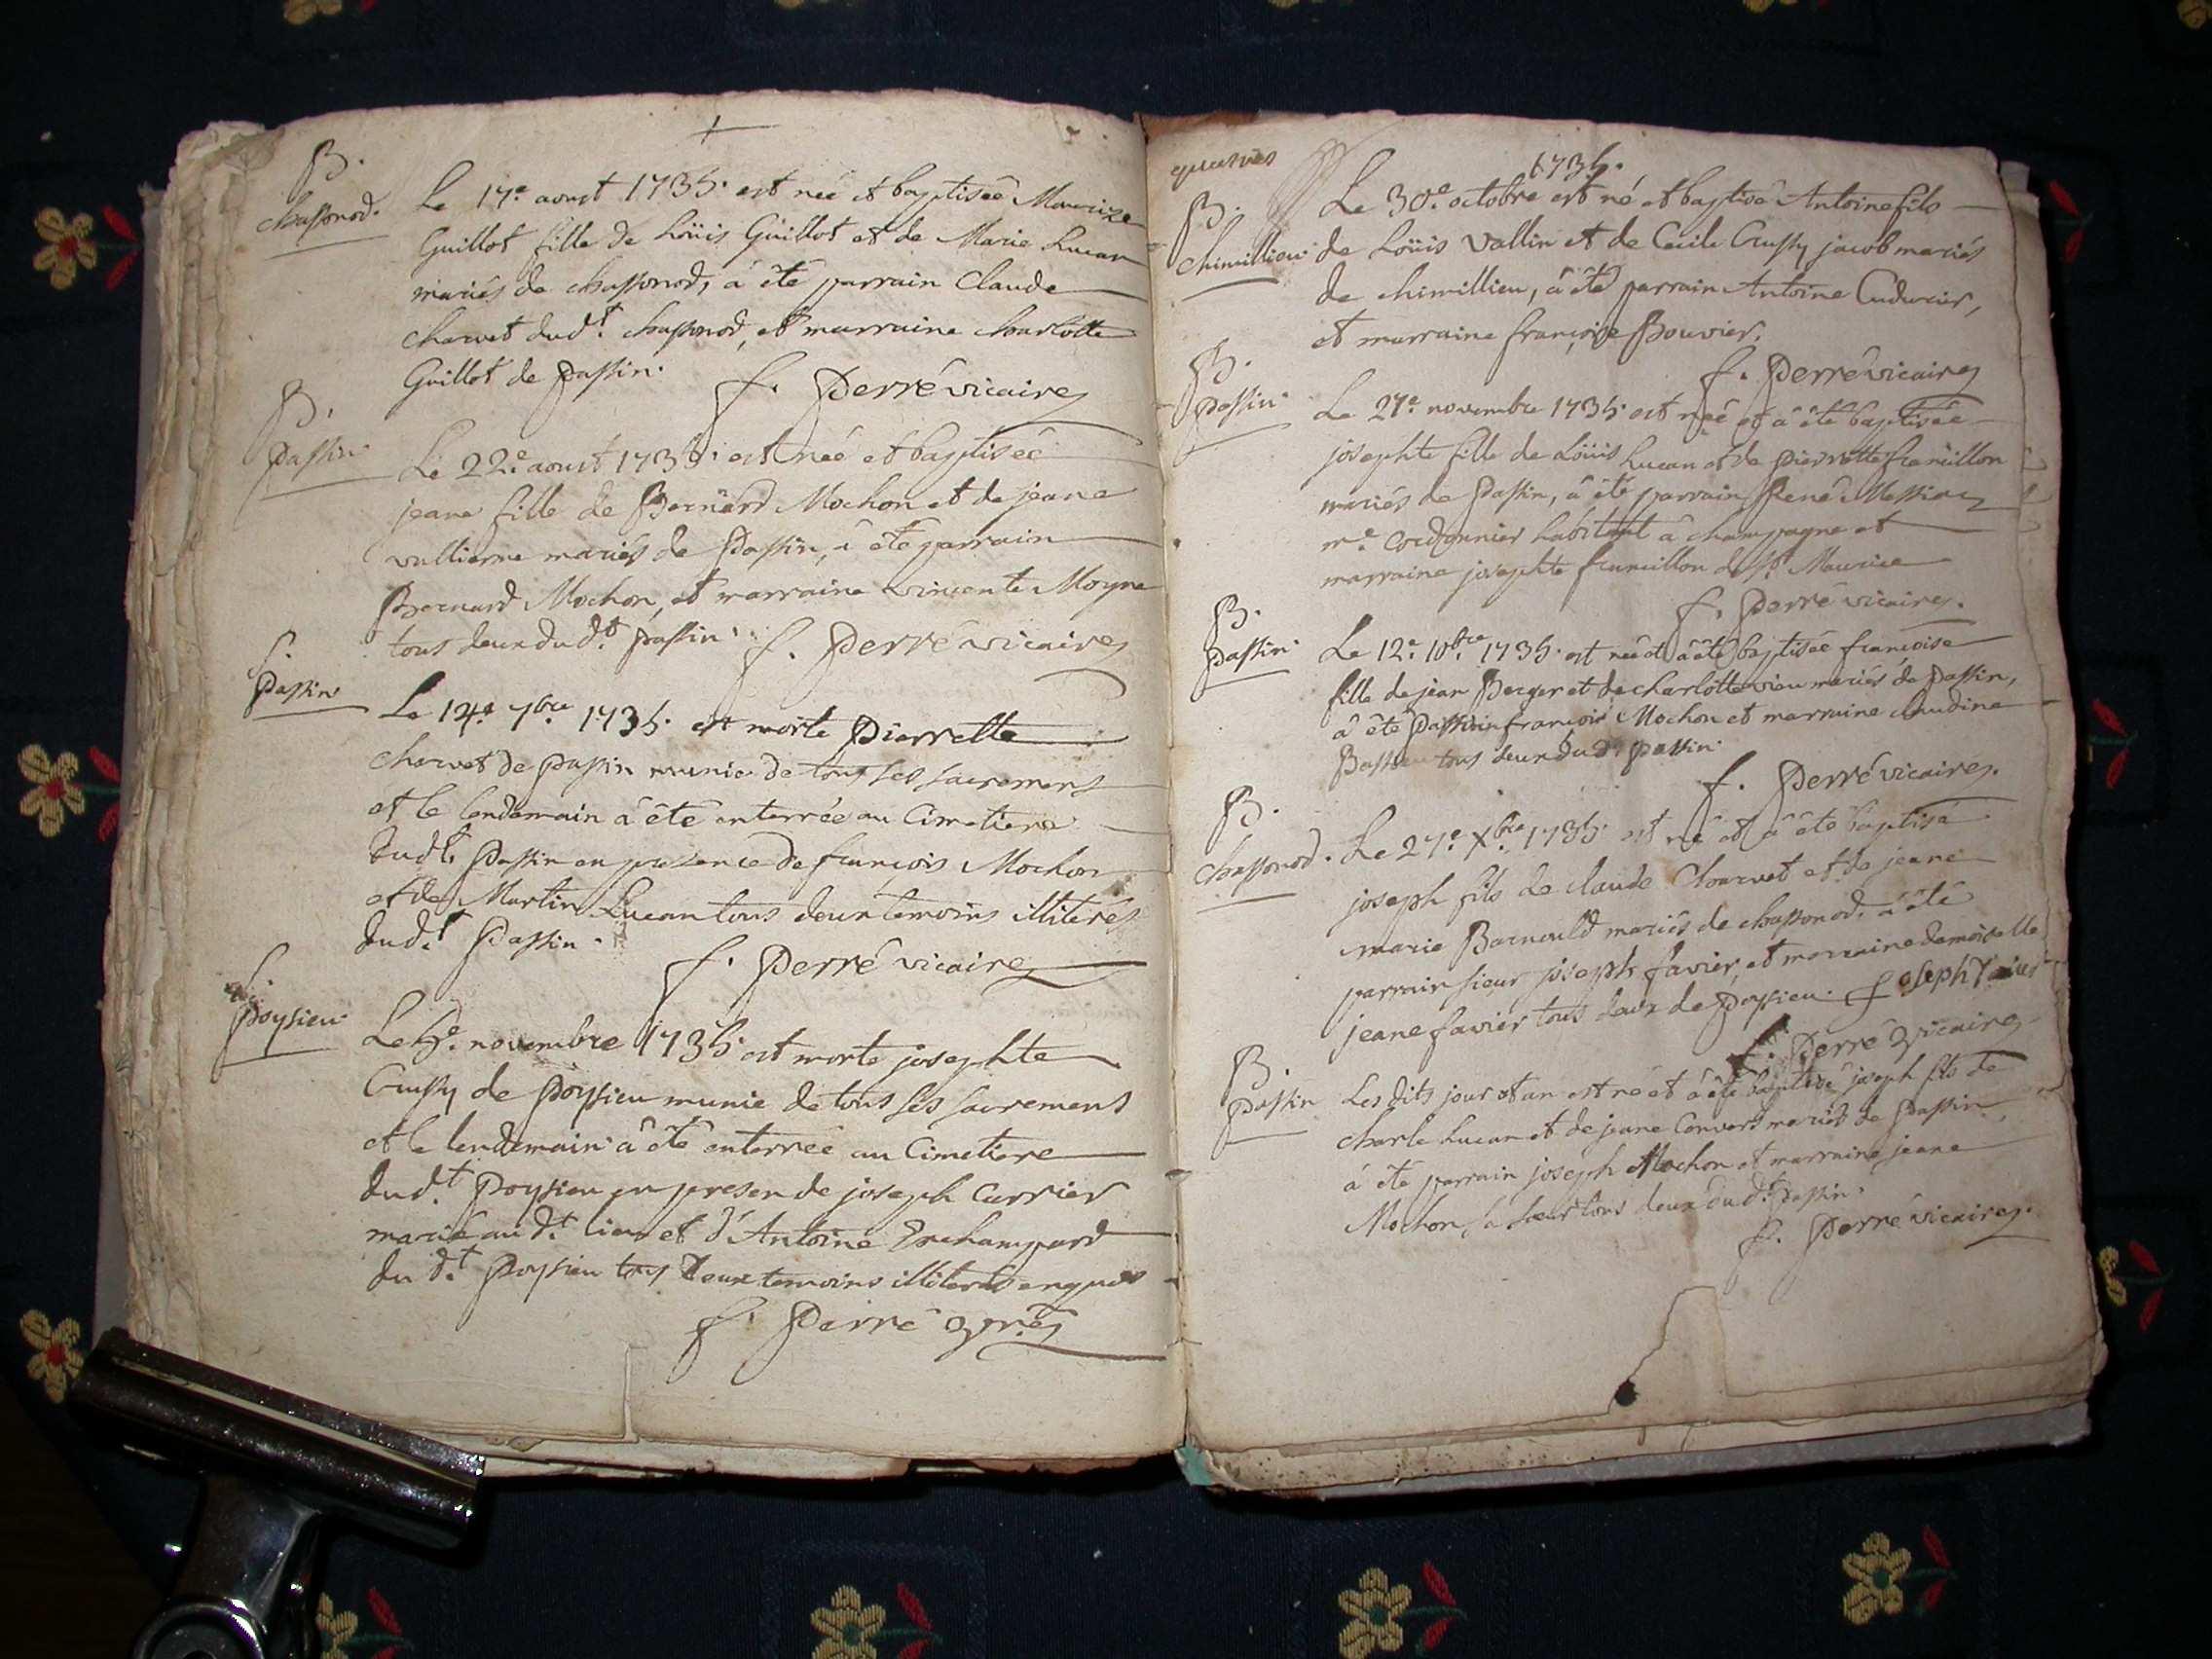 B.
chassonod.
Le 17e. aoust 1735. est neé et baptiseé Maurize
Guillot fille de Loüis Guillot et de Marie Lucan
mariés de chassonod, á été parrain Claude
charvet dudt. chassonod, et marraine charlotte
Guillot de passin.
f. Perré vicaire
B.
passin.
Le 22e. aoust 1735. est neé et baptiseé
jeane fille de Bernard Mochon et de jeane
vullierme mariés de Passin, á été parrain
Bernard Mochon, et marraine vincente Moyne
tous deux dudt. passin.
f. Perré vicaire
S.
Passin
Le 14e. 7bre 1735. est morte Pierrette
charvet de passin munie de tous ses sacremens
et le lendemain á été enterrée au Cimetiere
dudt. Passin en presence de francois Mochon
et de Martin Lucan tous deux temoins illiterés
dudt. Passin.
f. Perré vicaire
S.
Poysieu.
Le 5e. novembre 1735. est morte josephte
Crussy de Poysieu munie de tous ses sacremens
et le lendemain á été enterreé au Cimetiere
dudt. Poysieu en presen de joseph Currier
marié audt. lieu et d'Antoine Enchampard
du dt. Poysieu tous deux temoins illiterés enquis
f. Perré
1735.
B.
chimillieu.
Le 30e. octobre est né et baptisé Antoine fils
de Loüis Vallin et de Cecile Crussy jacob mariés
de chimillieu, á été parrain Antoine Cudurier,
et marraine françoise Bouvier.
f. Perré vicaire
B.
passin.
Le 27e. novembre 1735. est neé et á été baptiseé
josephte fille de Loüis Lucan et de pierrette francillon
mariés de Passin, á été parrain René Messiaz
me. cordonnier habitant á champagne et
marraine josephte francillon de st. Maurice
f. Perré vicaire.
B.
Passin.
Le 12e. 10bre. 1735. est neé et á été baptiseé francoise
fille de jean Berger et de charlotte vieu mariés de Passin,
á été Parrain francois Mochon et marraine claudine
tous deux dudt. passin.
f. Perré vicaire.
B.
chassonod.
Le 27e. Xbre. 1735. est né et á été baptisé
joseph fils de claude Charvet et de jeane
marie Barnould mariés de chassonod. á été
parrain sieur joseph favier, et marraine demoiselle
jeane favier tous deux de Poysieu.
f. Perré vicaire
B.
passin
Les dits jour et an est né et á été baptisé joseph fils de
charle Lucan et de jeane Convert mariés de Passin,
á été parrain joseph Mochon et marraine jeane
Mochon sa soeur tous deux du dt. passin.
f. Perré vicaire.